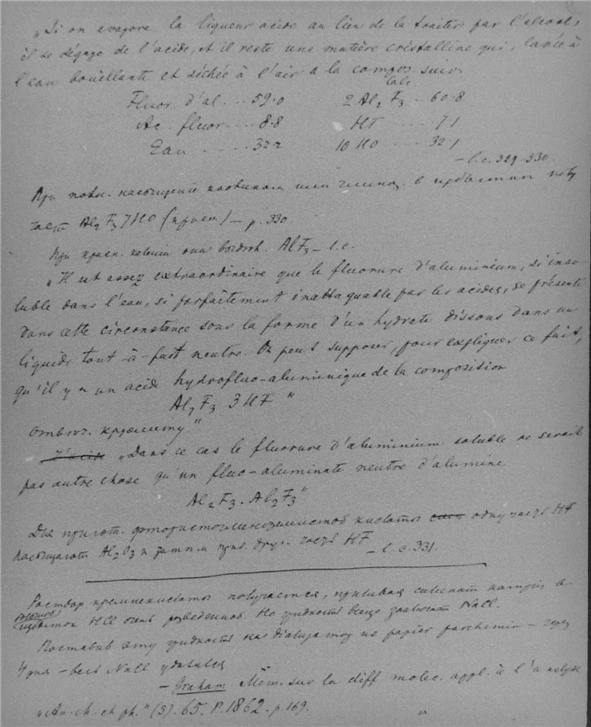 „Si on evapore la liqueur acide au lieu de la traiter par l'alcool,
il se dégage de l'acide, et il reste une matière cristalline qui, lavée à
l'eau bouillante et séchée à l'air a la compos. suiv.
Calc.
Fluor. d'al. . . . 59.0 2Al2 F3 - 60.8
Ac. fluor . . . 8.8 HF . . . . 7.1
Eau . . . . . 32.2 10 HO . . . 32.1
- l.c. 329-330.
При насыщении в избытке полу
чаетъ Al2 F3 7HO - p. 330
При Al F3 - l.c.
„Il est assez extraordinaire que le fluorure d'aluminium, si inso-
luble dans l'eau, si parfaitement inattaquable par les acides, se présente
dans cette circonstance sous la forme d'un hydrate dissous dans un
liquide tout-à-fait neutre. On peut supposer, pour expliquer ce fait,
qu'il y a un acide hydrofluo-aluminique de la composition
Al2 F3 3HF "
отвеч. криолиту"
„Dans ce cas le fluorure d'aluminium soluble ne serait
pas autre chose qu'un fluo-aluminate neutre d'alumine
Al2 F3 . Al2 F3"
Для пригот. кислоты одну часть HF
насыщаютъ Al2O3 и затѣм приб. друг. часть HF
- l.c. 331.
Раствор кремнекислоты получается, приливая силикат натрія в
избыток HCl очень разведенной. Но жидкость еще NaCl.
Поставив эту жидкость на papier parchemin - через
4 дня - весь NaCl удаляется
- Graham Mém. sur la diff. molec. appl. à l'analyse
„An. ch. et ph." (3). 65. P. 1862. p. 169.